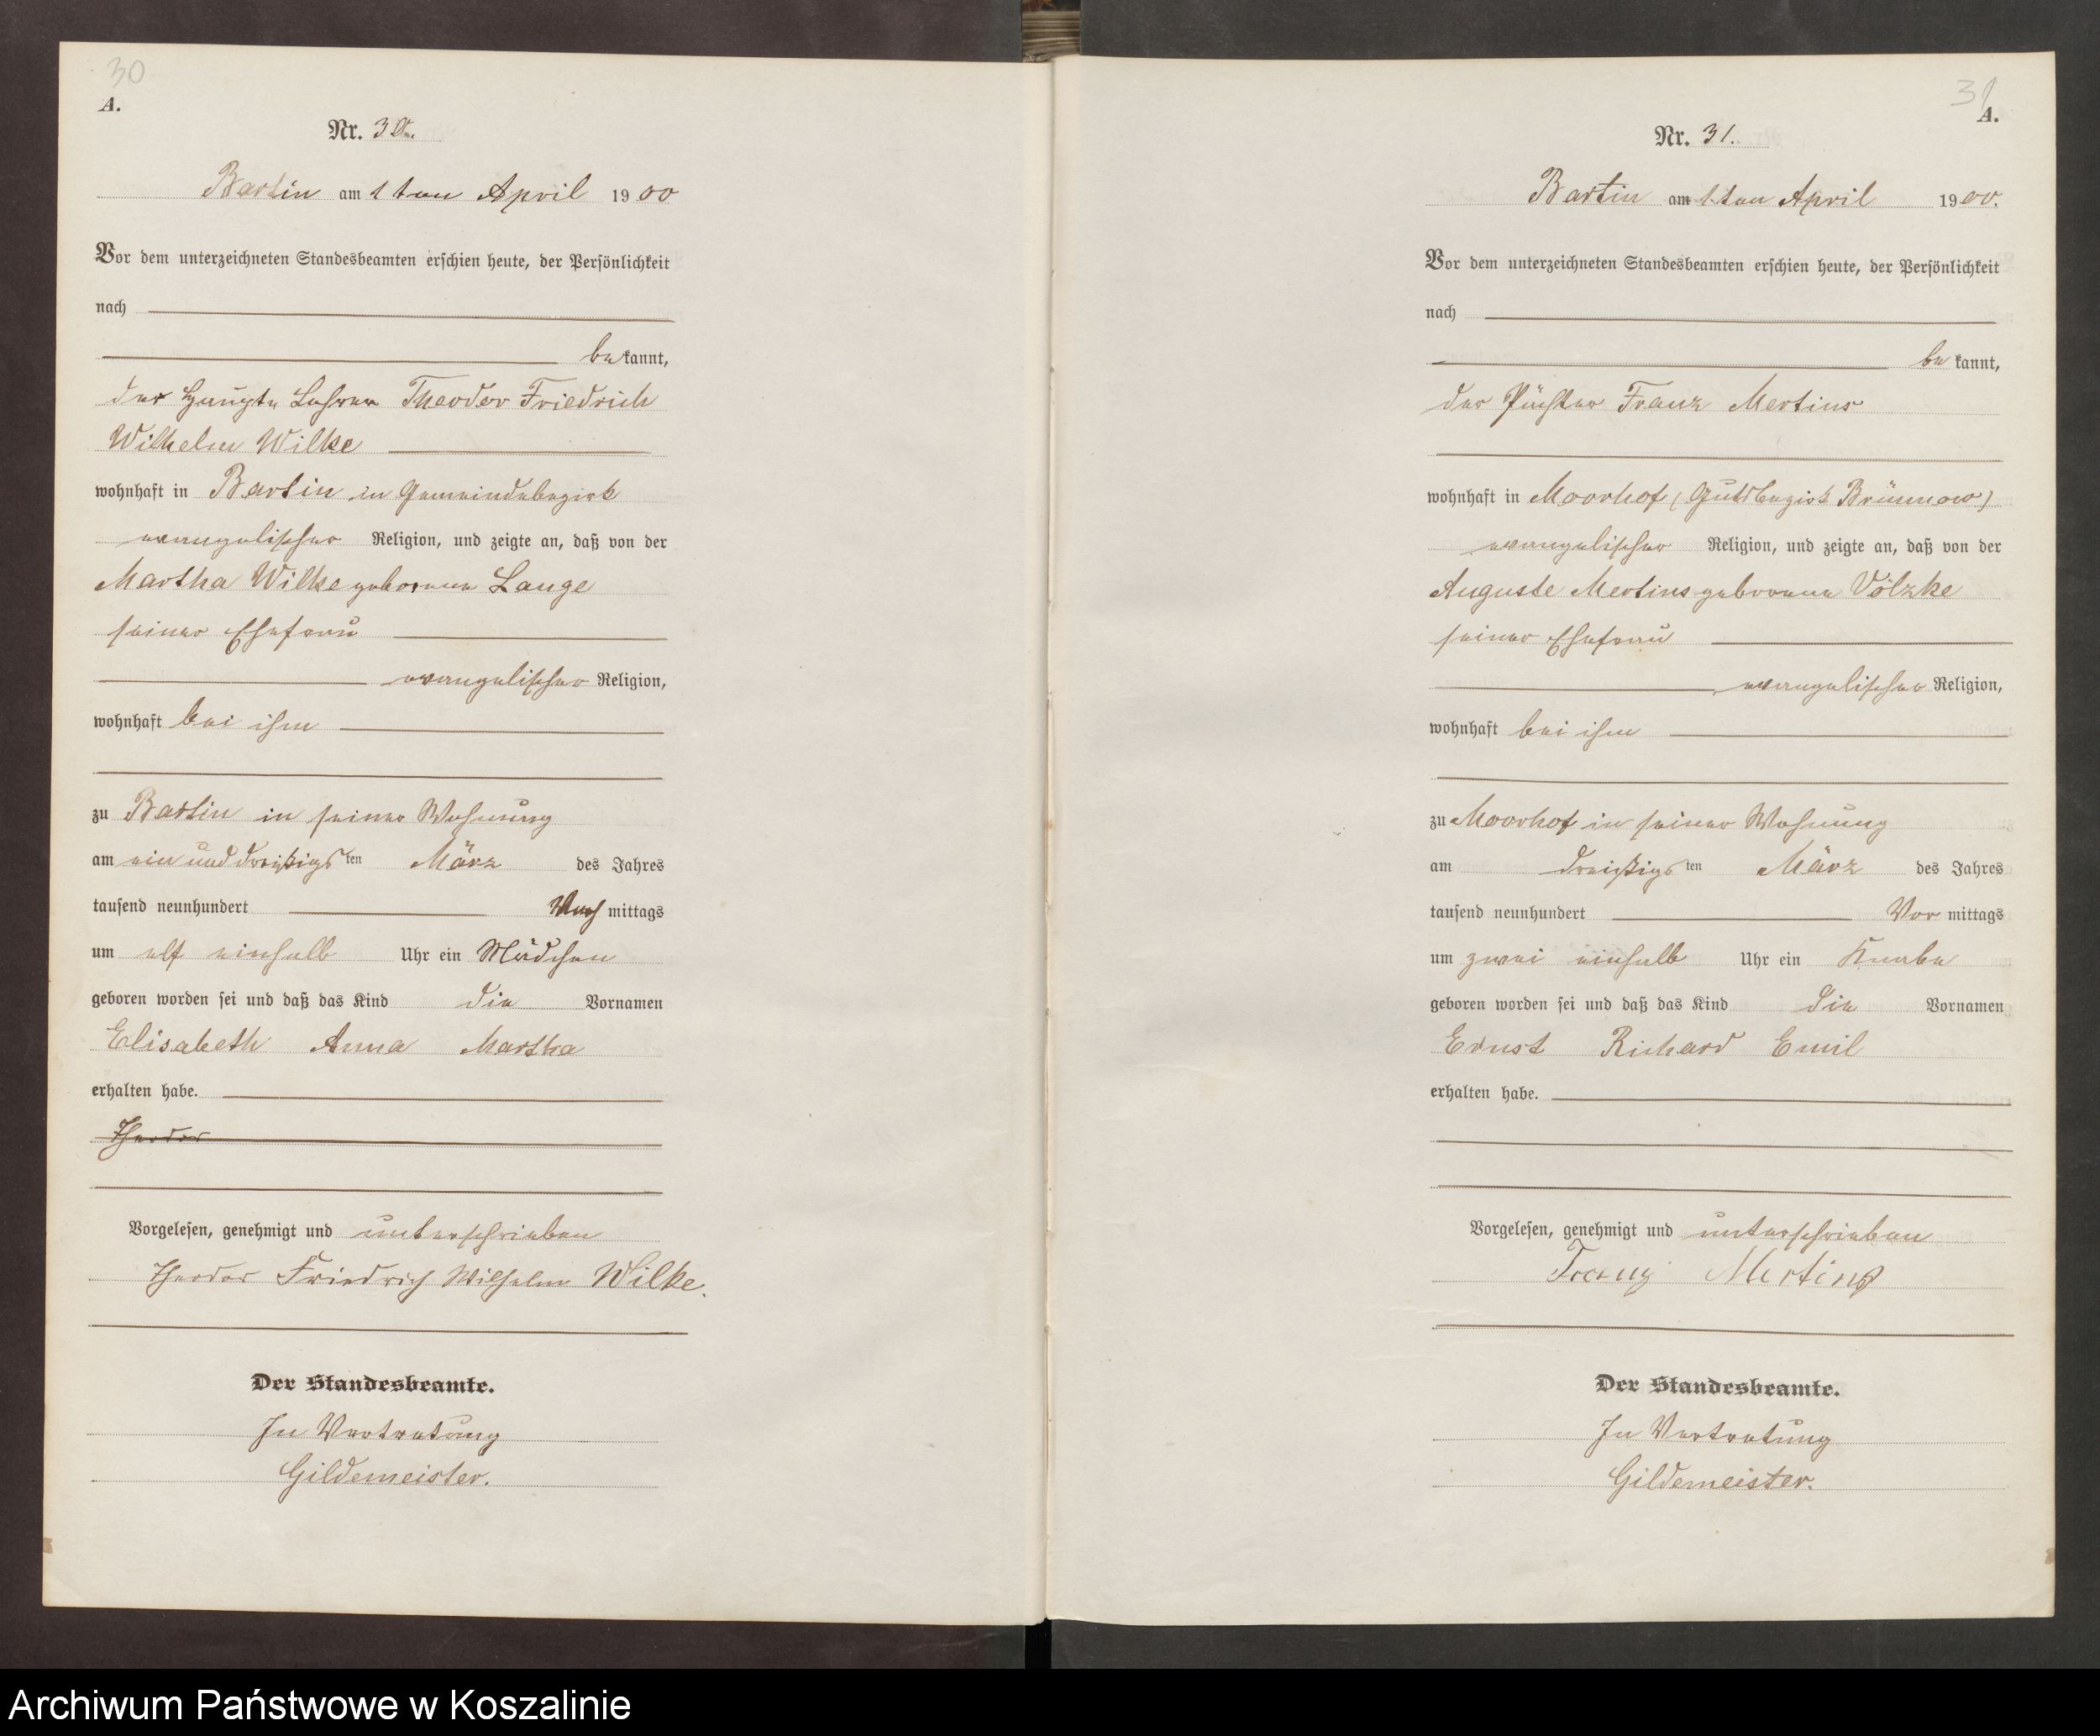 30
A.
Nr. 30.
Bartin am 1ten April 1900
Vor dem unterzeichneten Standesbeamten erschien heute, der Persönlichkeit
nach
bekannt,
der Haupt Lehrer Theodor Friedrich
Wilhelm Wilke
wohnhaft in Bartin in Gemeindebezirk
evangelischer Religion, und zeigte an, daß von der
Martha Wilke geborene Lange
seiner Ehefrau
evangelischer Religion,
wohnhaft bei ihm
zu Bartin in seiner Wohnung
am ein und dreißigsten März des Jahres
tausend neunhundert Nachmittags
um elf einhalb Uhr ein Mädchen
geboren worden sei und daß das Kind die Vornamen
Elisabeth Anna Martha
erhalten habe.
Theodor
Vorgelesen, genehmigt und unterschrieben
Theodor Friedrich Wilhelm Wilke.
Der Standesbeamte.
In Vertretung
Gildemeister.
31
A.
Nr. 31.
Bartin am 1.ten April 1900.
Vor dem unterzeichneten Standesbeamten erschien heute, der Persönlichkeit
nach
bekannt,
der Pächter Franz Mertins
wohnhaft in Moorhof (Gutsbezirk Brünnow)
evangelischer Religion, und zeigte an, daß von der
Auguste Mertins geborene Völzke
seiner Ehefrau
evangelischer Religion,
wohnhaft bei ihm
zu Moorhof in seiner Wohnung
am dreißigsten März des Jahres
tausend neunhundert Vormittags
um zwei einhalb Uhr ein Knabe
geboren worden sei und daß das Kind die Vornamen
Ernst Richard Emil
erhalten habe.
Vorgelesen, genehmigt und unterschrieben
Franz Mertins
Der Standesbeamte.
In Vertretung
Gildemeister.
Archiwum Państwowe w Koszalinie